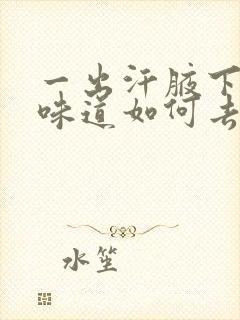 一出汗腋下
味道如何去
水笙